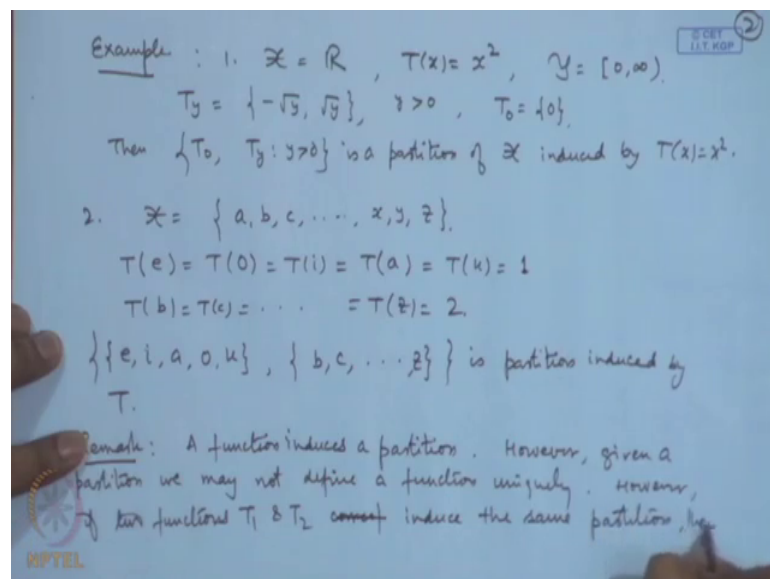 2
© CET
I.I.T. KGP
Example : 1. 𝒳 = ℝ , T(x) = x², 𝒴 = [0,∞).
T_y = {-√y, √y}, y > 0 , T₀ = {0}.
Then {T₀, T_y : y>0} is a partition of 𝒳 induced by T(x)=x².
2. 𝒳 = { a, b, c, ....., x, y, z}.
T(e) = T(o) = T(i) = T(a) = T(u) = 1
T(b) = T(c) = . . . . = T(z) = 2.
{{e, i, a, o, u} , { b, c, . . . , z} } is partition induced by
T.
Remark : A function induces a partition . However, given a
partition we may not define a function uniquely . However,
if two functions T₁ & T₂ induce the same partition, the
NPTEL